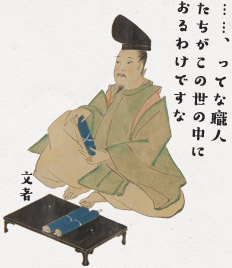 ……、ってな職人
たちがこの世の中に
おるわけですな
文者